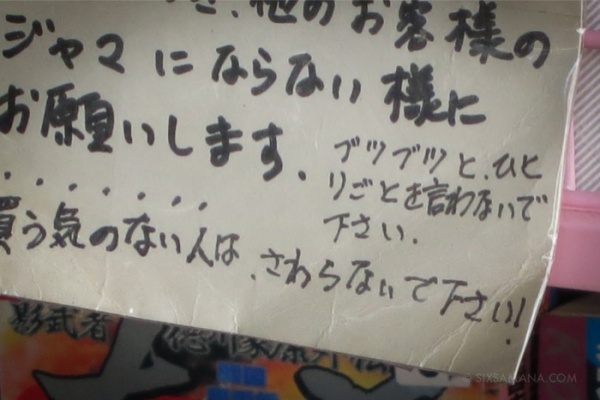 、他のお客様の
ジャマにならない様に
お願いします.
ブツブツと、ひと
りごとを言わないで
下さい.
買う気のない人は、さわらないで下さい!
影武者 徳川家康外伝
SIXSAMANA.COM